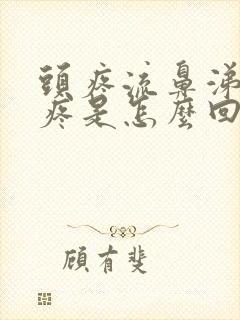 頭疼流鼻涕
疼是怎麼回
顧有斐